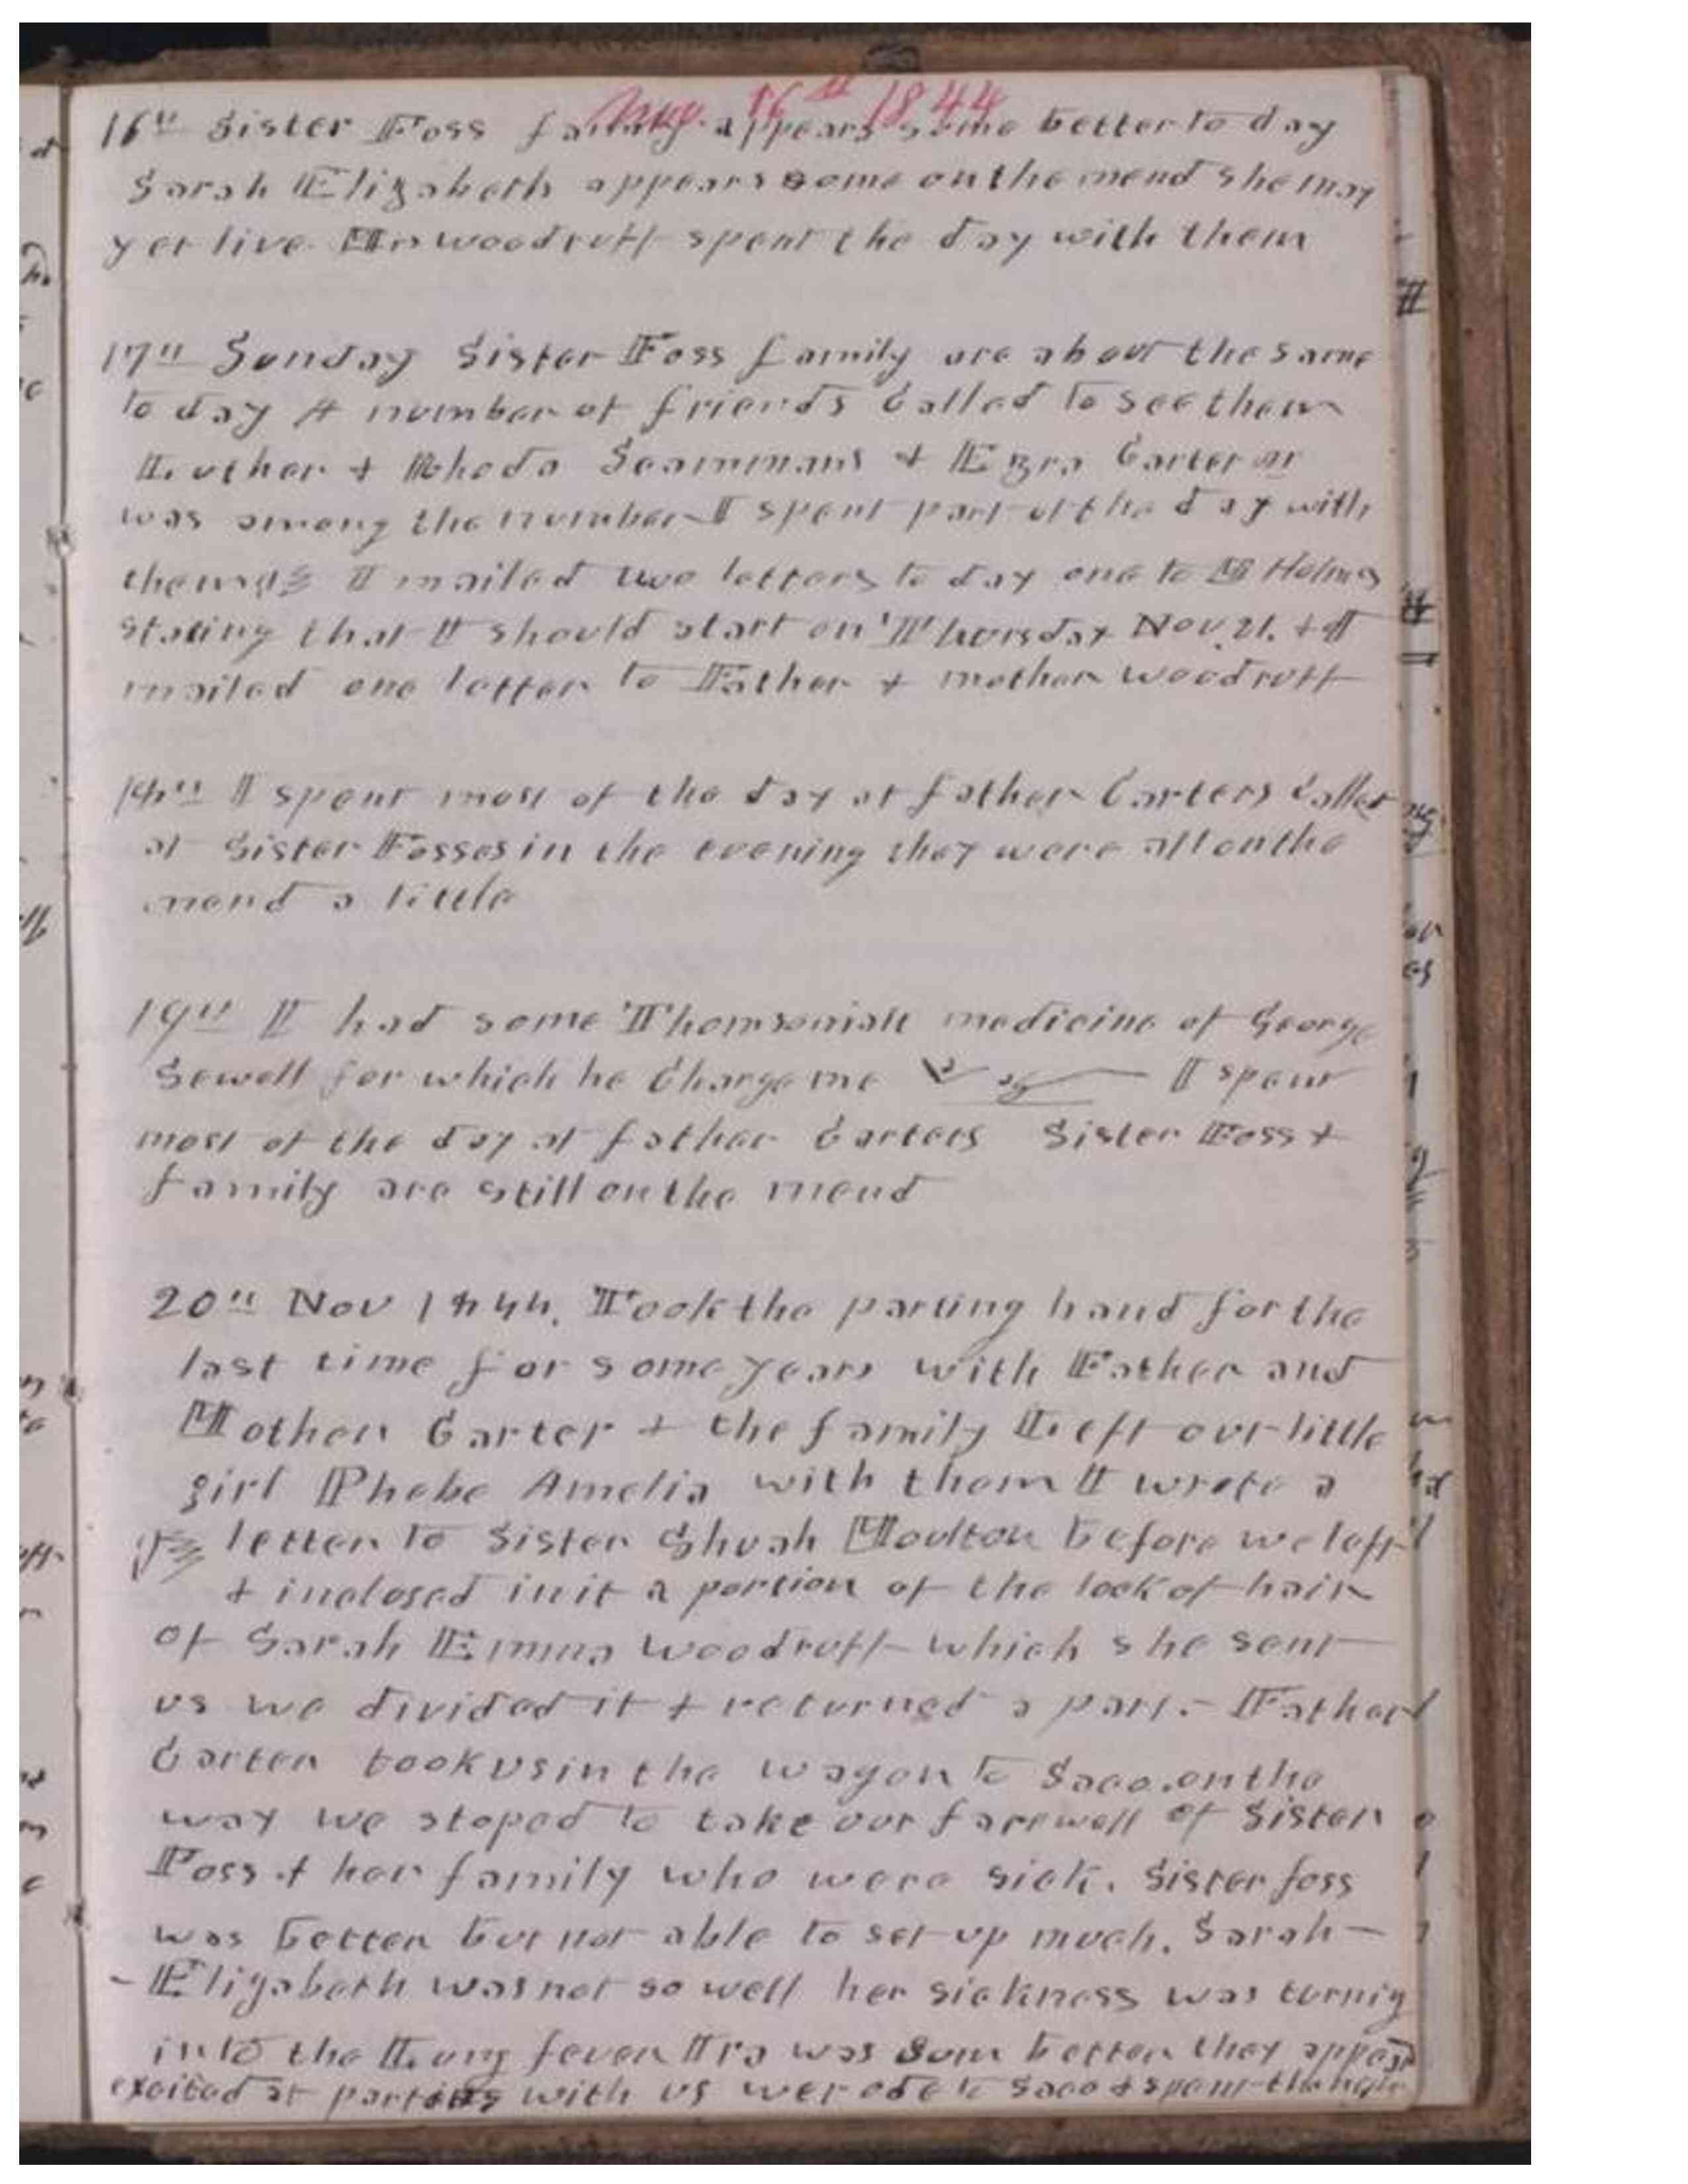 Nov. 16th 1844
16th Sister Foss family appears some better to day
Sarah Elizabeth appears some on the mend she may
yet live. Mrs Woodruff spent the day with them
17th Sunday Sister Foss family are about the same
to day A number of friends Called to see them
Luther + Rhoda Scammans + Ezra Carter jr
was among the number I spent part of the day with
them I mailed two letters to day one to M Holmes
stating that I should start on Thursday Nov. 21. + I
mailed one letter to Father + mother Woodruff
18th I spent most of the day at father Carters Called
at Sister Fosses in the evening they were all on the
mend a little
19th I had some Thomsonian medicine of George
Sewell for which he Charge me I spent
most of the day at father Carters Sister Foss +
family are still on the mend
20th Nov 1844. Took the parting hand for the
last time for some years with Father and
Mother Carter + the family Left our little
girl Phebe Amelia with them I wrote a
letter to Sister Shuah Moulton before we left
+ inclosed in it a portion of the lock of hair
of Sarah Emma Woodruff which she sent
us we divided it + returned a part. - Father
Carter took us in the wagon to Saco. on the
way we stoped to take our farewell of Sister
Foss + her family who were sick. Sister foss
was better but not able to set up much. Sarah -
- Elizabeth was not so well her sickness was turnig
into the Lung fever Ira was som better they appead
excited at parting with us we rode to Saco + spent the night